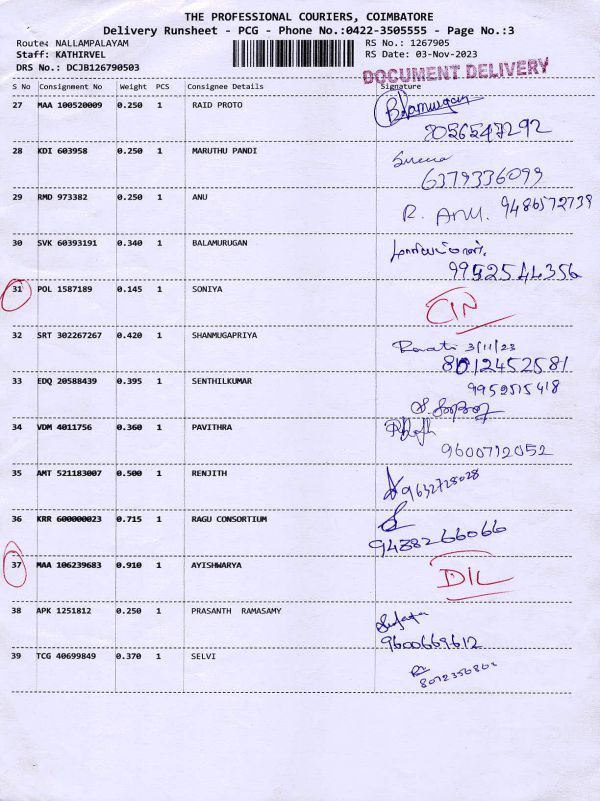 THE PROFESSIONAL COURIERS, COIMBATORE
Delivery Runsheet - PCG - Phone No.:0422-3505555 - Page No.:3
Route: NALLAMPALAYAM RS No.: 1267905
Staff: KATHIRVEL RS Date: 03-Nov-2023
DRS No.: DCJB126790503
DOCUMENT DELIVERY
S No Consignment No Weight PCS Consignee Details Signature
27 MAA 100520009 0.250 1 RAID PROTO Balamurugan
8056547292
28 KDI 603958 0.250 1 MARUTHU PANDI
6379336099
29 RMD 973382 0.250 1 ANU R. ANU. 9486572739
30 SVK 60393191 0.340 1 BALAMURUGAN
9952544356
31 POL 1587189 0.145 1 SONIYA CIN
32 SRT 302267267 0.420 1 SHANMUGAPRIYA 3/11/23
8012452581
33 EDQ 20588439 0.395 1 SENTHILKUMAR 9959515418
34 VDM 4011756 0.360 1 PAVITHRA
9600712052
35 AMT 521183007 0.500 1 RENJITH 9632728028
36 KRR 600000023 0.715 1 RAGU CONSORTIUM
9438266066
37 MAA 106239683 0.910 1 AYISHWARYA D/L
38 APK 1251812 0.250 1 PRASANTH RAMASAMY
9600669612
39 TCG 40699849 0.370 1 SELVI